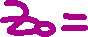 Z₀ =